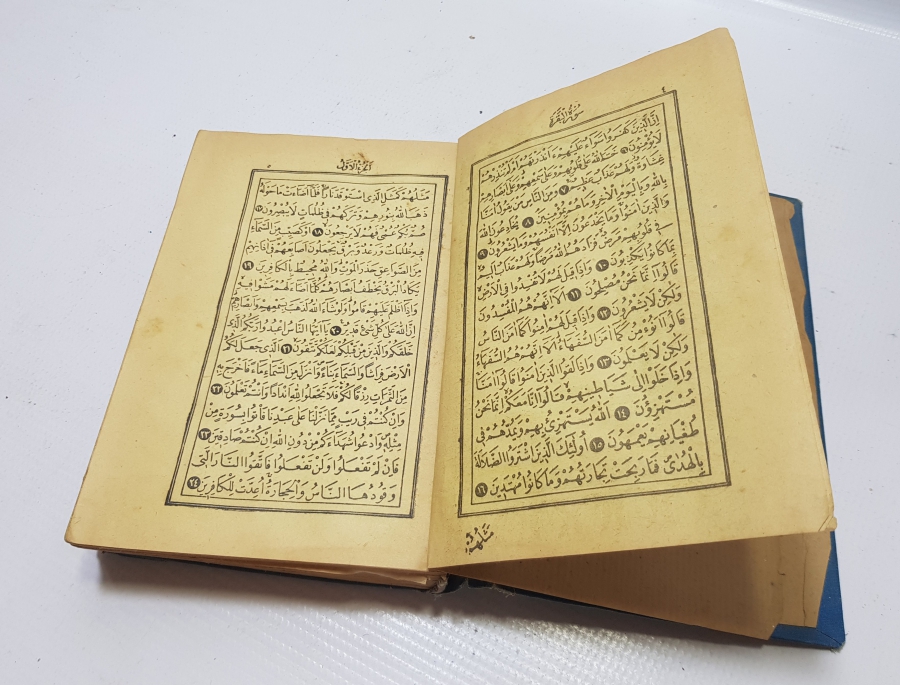 ٤
سُورَةُ الْبَقَرَةِ
اِنَّ الَّذِينَ كَفَرُوا سَوَاءٌ عَلَيْهِمْ ءَاَنْذَرْتَهُمْ اَمْ لَمْ تُنْذِرْهُمْ
لَا يُؤْمِنُونَ ٦ خَتَمَ اللهُ عَلَى قُلُوبِهِمْ وَعَلَى سَمْعِهِمْ وَعَلَى اَبْصَارِهِمْ
غِشَاوَةٌ وَلَهُمْ عَذَابٌ عَظِيمٌ ٧ وَمِنَ النَّاسِ مَنْ يَقُولُ اٰمَنَّا
بِاللهِ وَبِالْيَوْمِ الْاٰخِرِ وَمَا هُمْ بِمُؤْمِنِينَ ٨ يُخَادِعُونَ اللهَ
وَالَّذِينَ اٰمَنُوا وَمَا يَخْدَعُونَ اِلَّا اَنْفُسَهُمْ وَمَا يَشْعُرُونَ ٩
فِي قُلُوبِهِمْ مَرَضٌ فَزَادَهُمُ اللهُ مَرَضًا وَلَهُمْ عَذَابٌ اَلِيمٌ
بِمَا كَانُوا يَكْذِبُونَ ١٠ وَاِذَا قِيلَ لَهُمْ لَا تُفْسِدُوا فِي الْاَرْضِ
قَالُوا اِنَّمَا نَحْنُ مُصْلِحُونَ ١١ اَلَا اِنَّهُمْ هُمُ الْمُفْسِدُونَ
وَلٰكِنْ لَا يَشْعُرُونَ ١٢ وَاِذَا قِيلَ لَهُمْ اٰمِنُوا كَمَا اٰمَنَ النَّاسُ
قَالُوا اَنُؤْمِنُ كَمَا اٰمَنَ السُّفَهَاءُ اَلَا اِنَّهُمْ هُمُ السُّفَهَاءُ
وَلٰكِنْ لَا يَعْلَمُونَ ١٣ وَاِذَا لَقُوا الَّذِينَ اٰمَنُوا قَالُوا اٰمَنَّا
وَاِذَا خَلَوْا اِلَى شَيَاطِينِهِمْ قَالُوا اِنَّا مَعَكُمْ اِنَّمَا نَحْنُ
مُسْتَهْزِؤُنَ ١٤ اَللهُ يَسْتَهْزِئُ بِهِمْ وَيَمُدُّهُمْ فِي
طُغْيَانِهِمْ يَعْمَهُونَ ١٥ اُولٰئِكَ الَّذِينَ اشْتَرَوُا الضَّلَالَةَ
بِالْهُدٰى فَمَا رَبِحَتْ تِجَارَتُهُمْ وَمَا كَانُوا مُهْتَدِينَ ١٦
مَثَلُهُمْ
اَلْجُزْءُ الْاَوَّلُ
٥
مَثَلُهُمْ كَمَثَلِ الَّذِي اسْتَوْقَدَ نَارًا فَلَمَّا اَضَاءَتْ مَا حَوْلَهُ
ذَهَبَ اللهُ بِنُورِهِمْ وَتَرَكَهُمْ فِي ظُلُمَاتٍ لَا يُبْصِرُونَ ١٧
صُمٌّ بُكْمٌ عُمْيٌ فَهُمْ لَا يَرْجِعُونَ ١٨ اَوْ كَصَيِّبٍ مِنَ السَّمَاءِ
فِيهِ ظُلُمَاتٌ وَرَعْدٌ وَبَرْقٌ يَجْعَلُونَ اَصَابِعَهُمْ فِي اٰذَانِهِمْ
مِنَ الصَّوَاعِقِ حَذَرَ الْمَوْتِ وَاللهُ مُحِيطٌ بِالْكَافِرِينَ ١٩
يَكَادُ الْبَرْقُ يَخْطَفُ اَبْصَارَهُمْ كُلَّمَا اَضَاءَ لَهُمْ مَشَوْا فِيهِ
وَاِذَا اَظْلَمَ عَلَيْهِمْ قَامُوا وَلَوْ شَاءَ اللهُ لَذَهَبَ بِسَمْعِهِمْ وَاَبْصَارِهِمْ
اِنَّ اللهَ عَلَى كُلِّ شَيْءٍ قَدِيرٌ ٢٠ يَا اَيُّهَا النَّاسُ اعْبُدُوا رَبَّكُمُ الَّذِي
خَلَقَكُمْ وَالَّذِينَ مِنْ قَبْلِكُمْ لَعَلَّكُمْ تَتَّقُونَ ٢١ اَلَّذِي جَعَلَ لَكُمُ
الْاَرْضَ فِرَاشًا وَالسَّمَاءَ بِنَاءً وَاَنْزَلَ مِنَ السَّمَاءِ مَاءً فَاَخْرَجَ بِهِ
مِنَ الثَّمَرَاتِ رِزْقًا لَكُمْ فَلَا تَجْعَلُوا لِلّٰهِ اَنْدَادًا وَاَنْتُمْ تَعْلَمُونَ ٢٢
وَاِنْ كُنْتُمْ فِي رَيْبٍ مِمَّا نَزَّلْنَا عَلَى عَبْدِنَا فَأْتُوا بِسُورَةٍ مِنْ
مِثْلِهِ وَادْعُوا شُهَدَاءَكُمْ مِنْ دُونِ اللهِ اِنْ كُنْتُمْ صَادِقِينَ ٢٣
فَاِنْ لَمْ تَفْعَلُوا وَلَنْ تَفْعَلُوا فَاتَّقُوا النَّارَ الَّتِي
وَقُودُهَا النَّاسُ وَالْحِجَارَةُ اُعِدَّتْ لِلْكَافِرِينَ ٢٤